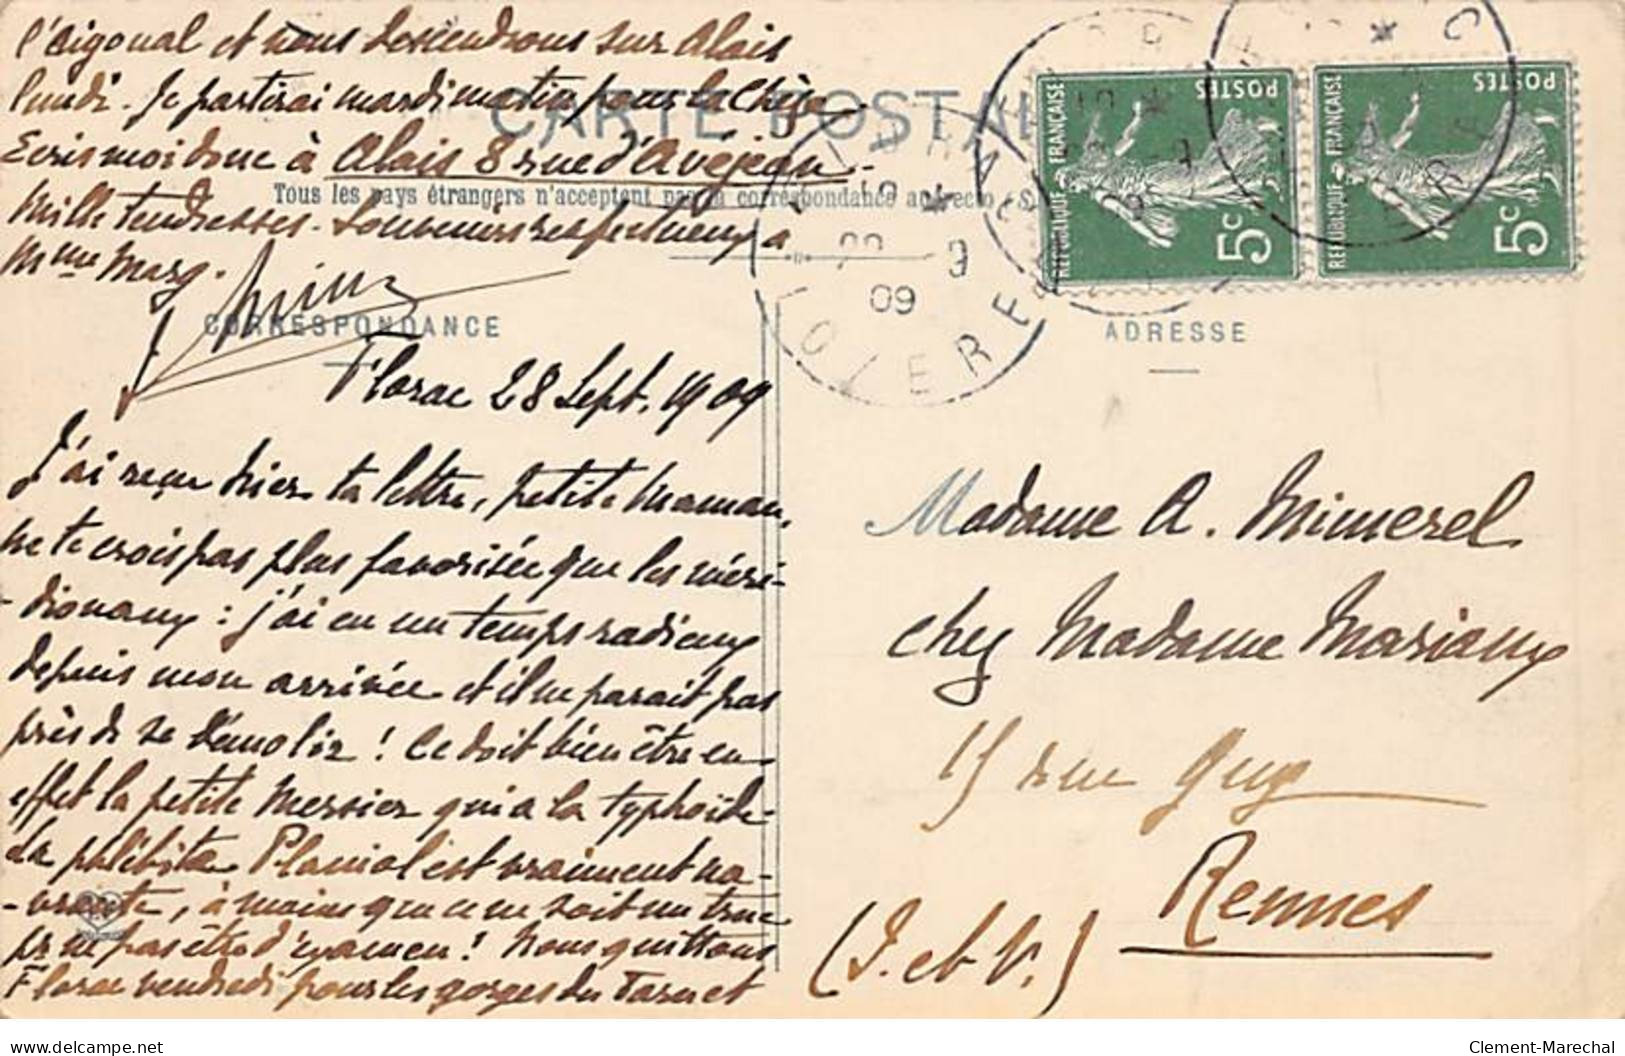 l'Aigoual et nous descendrons sur Alais
lundi. Je partirai mardi matin pour la Chèze
Ecris moi donc à Alais 8 rue d'Avéjean.
Mille tendresses. Souvenirs respectueux à
Mme Marg.
CARTE POSTALE
Tous les pays étrangers n'acceptent pas la correspondance au recto
CORRESPONDANCE
Florac 28 Sept. 1909
J'ai reçu hier ta lettre, petite Maman,
ne te crois pas plus favorisée que les méri-
-dionaux : j'ai eu un temps radieux
depuis mon arrivée et il ne parait pas
près de se démolir ! Ce doit bien être en
effet la petite Messier qui a la typhoïde
La phlébite Planiol est vraiment na-
-vrante, à moins que ce ne soit un truc
pr ne pas être d'examen ! Nous quittons
Florac vendredi pour les gorges du Tarn et
ADRESSE
Madame A. Mimerel
chez Madame Mariaux
15 rue Guy
Rennes
(I. et V.)
REPUBLIQUE FRANÇAISE
POSTES
5c
REPUBLIQUE FRANÇAISE
POSTES
5c
09
LOZERE
delcampe.net
Clement-Marechal